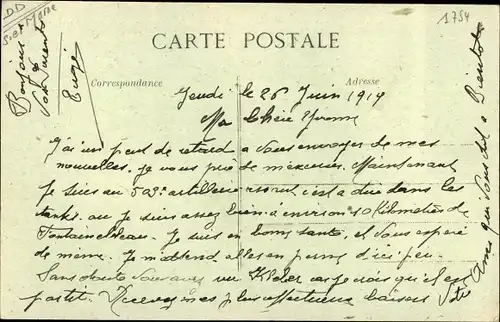 DD
S et Marne
1754
CARTE POSTALE
Correspondance
Adresse
Bonjour
à
vos Parents
Eugène
Jeudi le 26 Juin 1919
Ma Chère Yvonne
J'ai un peut de retard a vous envoyer de mes
nouvelles. je vous prie de m'excuser. Maintenant
je suis au 503e artillerie c'est a dire dans les
tanks. ou je suis assez bien a environs 10 kilomètres de
Fontainebleau. Je suis en bonne santé, et vous espère
de même. Je m'attend allez en perme d'ici peu.
Sans doute vous avez vu car je crois qu'il est
partit. Recevez mes plus affectueux baisers Votre
Ami qui vous dit a Bientot